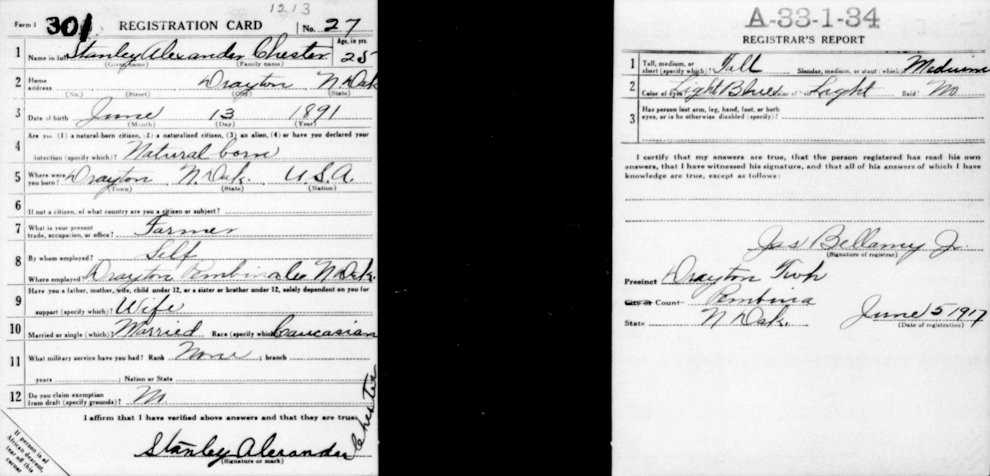 1213
Form 1 301 REGISTRATION CARD No. 27
1 Name in full Stanley Alexander Chester Age, in yrs. 25
(Given name) (Family name)
2 Home address Drayton N Dak
(No.) (Street) (City) (State)
3 Date of birth June 13 1891
(Month) (Day) (Year)
4 Are you (1) a natural-born citizen, (2) a naturalized citizen, (3) an alien, (4) or have you declared your
intention (specify which)? Natural born
5 Where were you born? Drayton N. Dak. U.S.A.
(Town) (State) (Nation)
6 If not a citizen, of what country are you a citizen or subject?
7 What is your present trade, occupation, or office? Farmer
8 By whom employed? Self
Where employed? Drayton Pembina Co N Dak.
9 Have you a father, mother, wife, child under 12, or a sister or brother under 12, solely dependent on you for
support (specify which)? Wife
10 Married or single (which)? Married Race (specify which)? Caucasian
11 What military service have you had? Rank None ; branch
years ; Nation or State
12 Do you claim exemption from draft (specify grounds)? No
I affirm that I have verified above answers and that they are true.
Stanley Alexander Chester
(Signature or mark)
If person is of
African descent,
tear off this
corner
A-33-1-34
REGISTRAR'S REPORT
1 Tall, medium, or short (specify which)? Tall Slender, medium, or stout (which)? Medium
2 Color of eyes? Light Blue Color of hair? Light Bald? No
3 Has person lost arm, leg, hand, foot, or both
eyes, or is he otherwise disabled (specify)?
I certify that my answers are true, that the person registered has read his own
answers, that I have witnessed his signature, and that all of his answers of which I have
knowledge are true, except as follows:
Jas Bellamy Jr.
(Signature of registrar)
Precinct Drayton Twp
City or County Pembina
State N Dak. June 5 1917
(Date of registration)